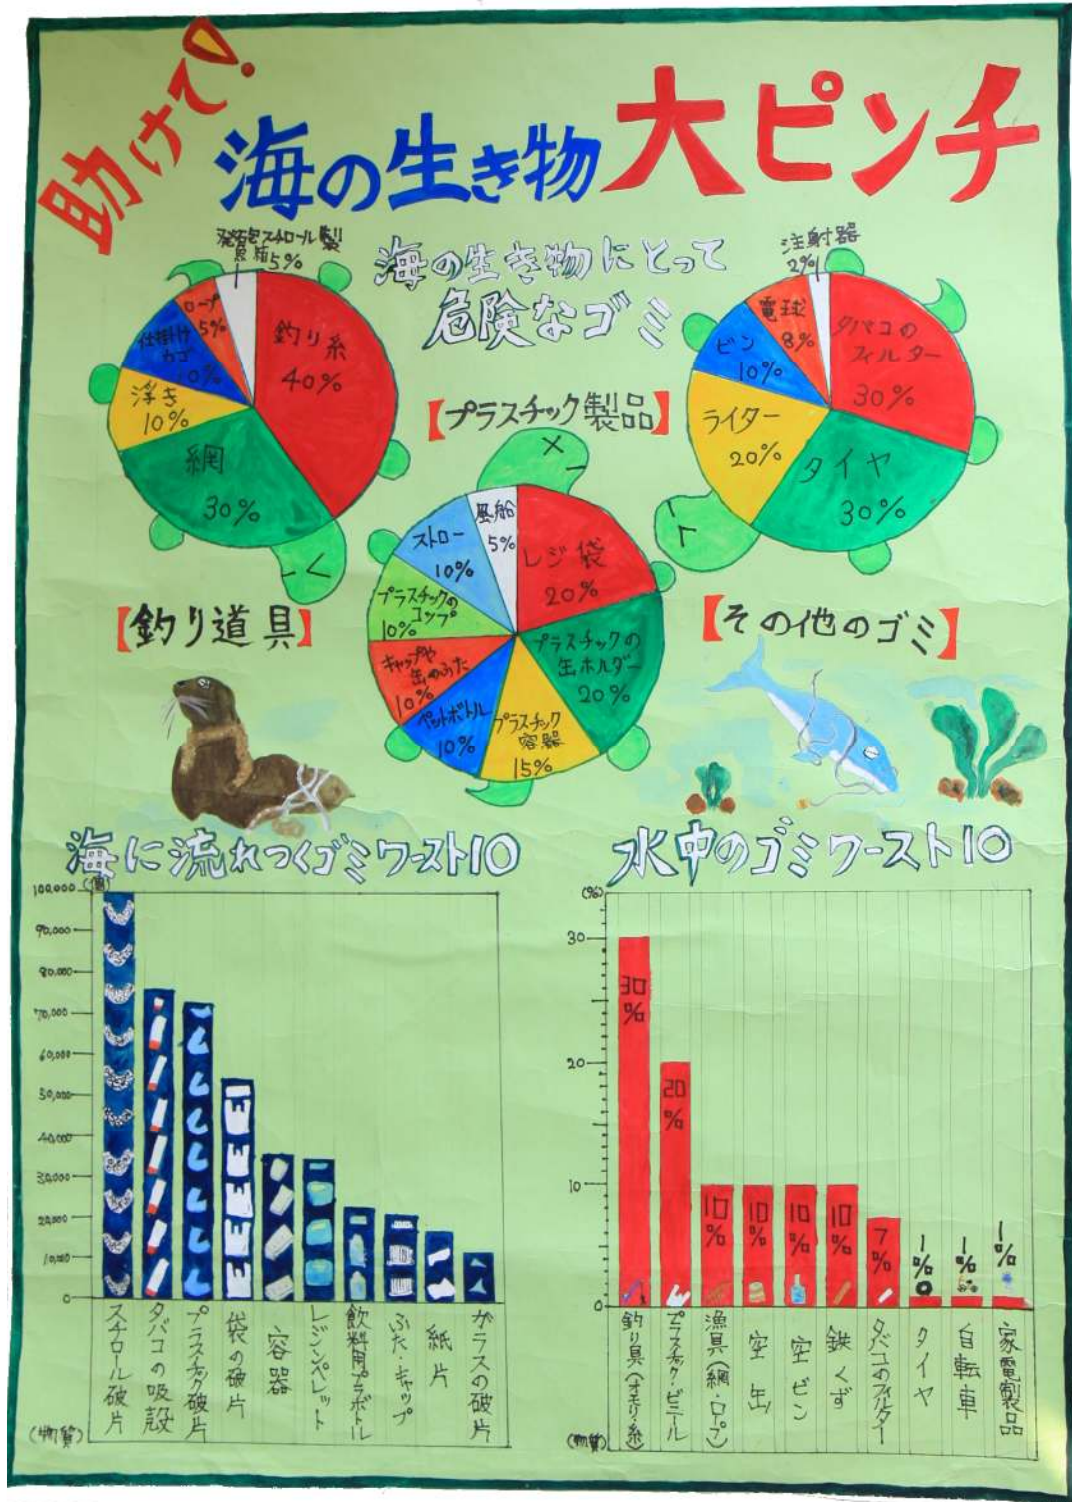 助けて!
海の生き物大ピンチ
海の生き物にとって
危険なゴミ
発泡スチロール製
魚箱5%
ロープ
5%
仕掛け
カゴ
10%
浮き
10%
網
30%
釣り糸
40%
【釣り道具】
【プラスチック製品】
風船
5%
ストロー
10%
プラスチックの
コップ
10%
キャップや
缶のふた
10%
ペットボトル
10%
プラスチック
容器
15%
プラスチックの
缶ホルダー
20%
レジ袋
20%
注射器
2%
電球
8%
ビン
10%
ライター
20%
タイヤ
30%
タバコの
フィルター
30%
【その他のゴミ】
海に流れつくゴミワースト10
(個)
100,000
90,000
80,000
70,000
60,000
50,000
40,000
30,000
20,000
10,000
0
スチロール破片
タバコの吸殻
プラスチック破片
袋の破片
容器
レジンペレット
飲料用プラボトル
ふた・キャップ
紙片
ガラスの破片
(物質)
水中のゴミワースト10
(%)
30
20
10
0
30%
20%
10%
10%
10%
10%
7%
1%
1%
1%
釣り具(オモリ・糸)
プラスチック・ビニール
漁具(網・ロープ)
空缶
空ビン
鉄くず
タバコのフィルター
タイヤ
自転車
家電製品
(物質)